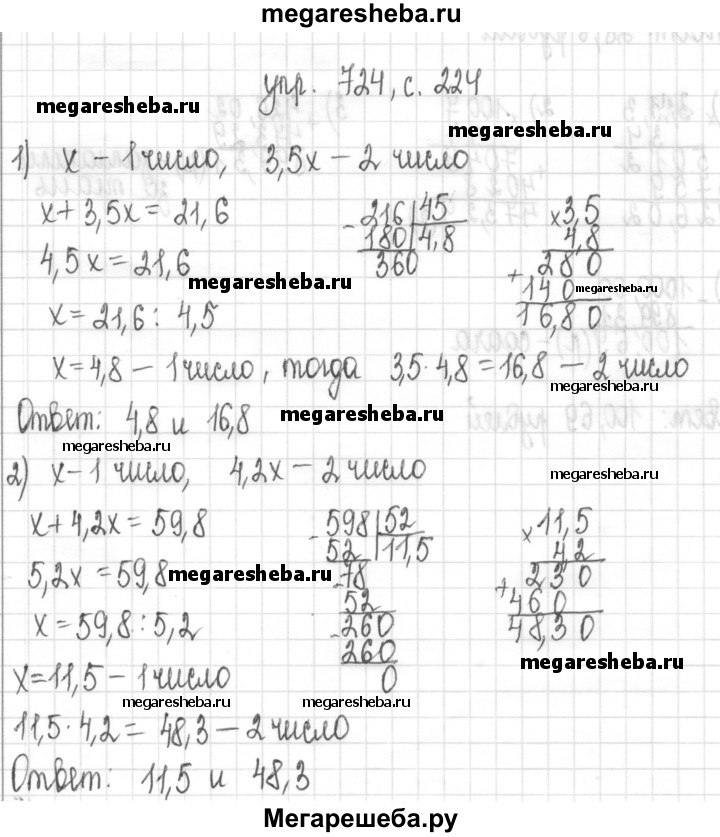 megaresheba.ru
упр. 724, с. 224
megaresheba.ru
megaresheba.ru
1) x – 1 число, 3,5x – 2 число
x + 3,5x = 21,6
4,5x = 21,6
megaresheba.ru
x = 21,6 : 4,5
- 216 | 45
180 | 4,8
360
x 3,5
4,8
+ 280
140
megaresheba.ru
16,80
x = 4,8 – 1 число, тогда 3,5 · 4,8 = 16,8 – 2 число
megaresheba.ru
Ответ: 4,8 и 16,8
megaresheba.ru
megaresheba.ru
2) x – 1 число, 4,2x – 2 число
megaresheba.ru
x + 4,2x = 59,8
5,2x = 59,8
megaresheba.ru
x = 59,8 : 5,2
x = 11,5 – 1 число
- 598 | 52
52 | 11,5
- 78
52
- 260
260
0
x 11,5
4,2
+ 230
460
48,30
megaresheba.ru
megaresheba.ru
megaresheba.ru
11,5 · 4,2 = 48,3 – 2 число
Ответ: 11,5 и 48,3
Мегарешеба.ру